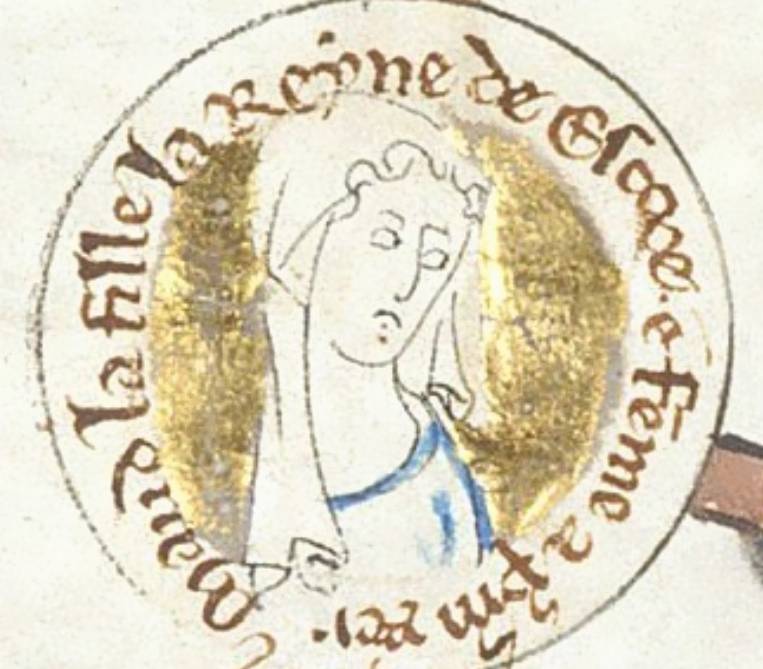 Maud la fille la Reyne de Escoce. e feme a rey.